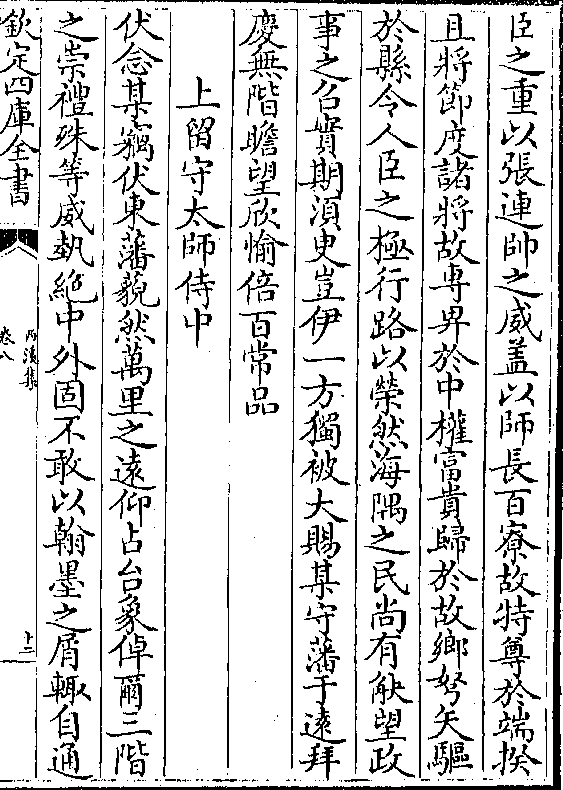 臣之重以張連帥之威盖以師長百寮故特尊於端揆
且將節度諸將故專畀於中權富貴歸於故鄉弩矢驅
於縣令人臣之極行路以榮然海隅之民尚有觖望政
事之召實期湏史豈伊一方獨被大賜某守藩于逺拜
慶無階瞻望欣愉倍百常品
上留守太師侍中
伏念某竊伏東藩藐然萬里之逺仰占台象倬爾三階
之崇禮殊等威埶絶中外固不敢以翰墨之屑輙自通
欽定四庫全書
西溪集
卷八
十二